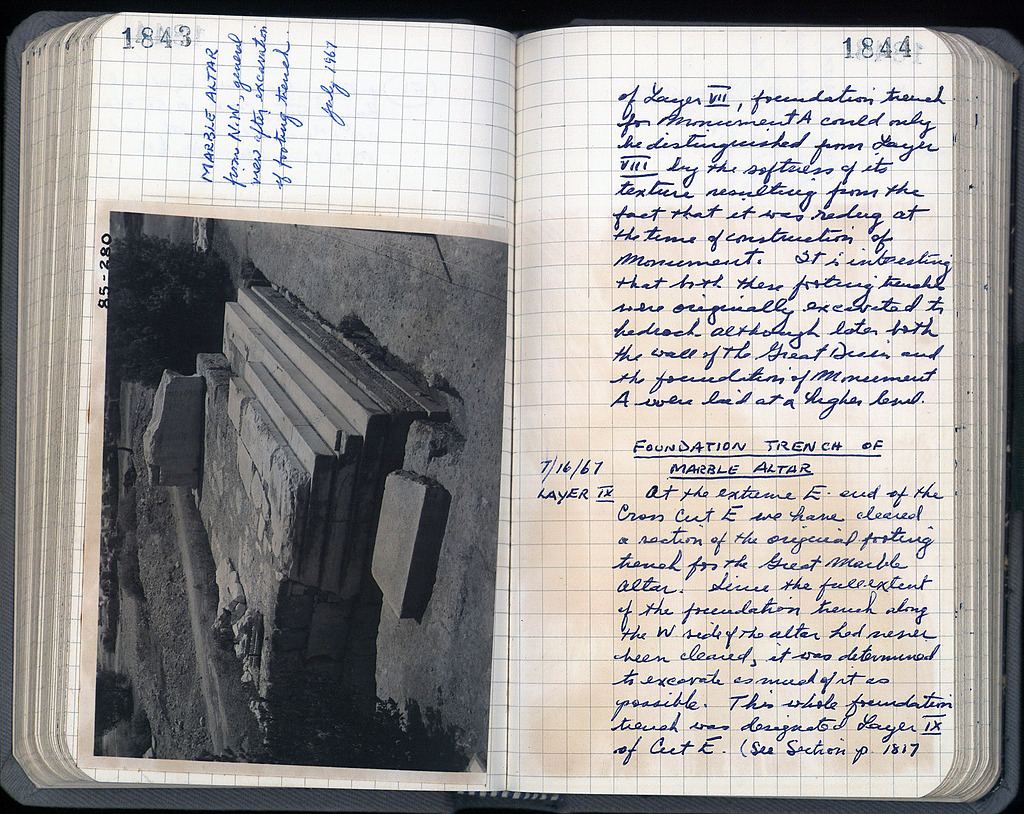 1843
MARBLE ALTAR
from N.W., general
view after excavation
of footing trench.
July 1967
85-280
1844
of Layer VII, foundation trench
for Monument A could only
be distinguished from Layer
VIII by the softness of its
texture resulting from the
fact that it was redug at
the time of construction of
Monument. It is interesting
that both these footing trenches
were originally excavated to
bedrock although later both
the wall of the Great Basin and
the foundation of Monument
A were laid at a higher level.
FOUNDATION TRENCH OF
MARBLE ALTAR
7/16/67
LAYER IX
At the extreme E. end of the
Cross Cut E we have cleared
a section of the original footing
trench for the Great Marble
altar. Since the full extent
of the foundation trench along
the W side of the altar had never
been cleared, it was determined
to excavate as much of it as
possible. This whole foundation
trench was designated Layer IX
of Cut E. (See Section p. 1817